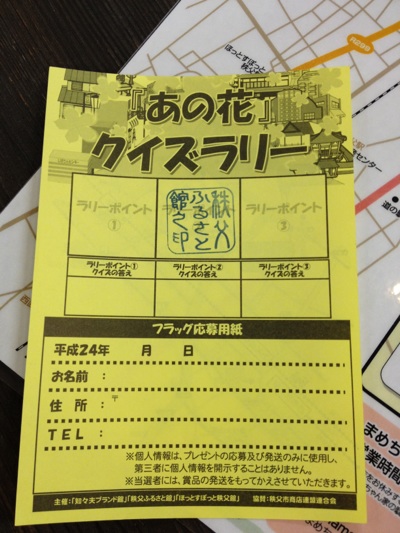 『あの花』
クイズラリー
ラリーポイント
①
秩父
ふるさと
館之印
ラリーポイント
③
ラリーポイント①
クイズの答え
ラリーポイント②
クイズの答え
ラリーポイント③
クイズの答え
フラッグ応募用紙
平成24年　月　日
お名前 ：
住　所 ：〒
ＴＥＬ ：
※個人情報は、プレゼントの応募及び発送のみに使用し、
第三者に個人情報を開示することはありません。
※当選者には、賞品の発送をもってかえさせていただきます。
主催：「知々夫ブランド館」「秩父ふるさと館」「ほっとすぽっと秩父館」　協賛：秩父市商店連盟連合会
ほっとすぽっと
R299
センター
道の駅
まめち
営業時間